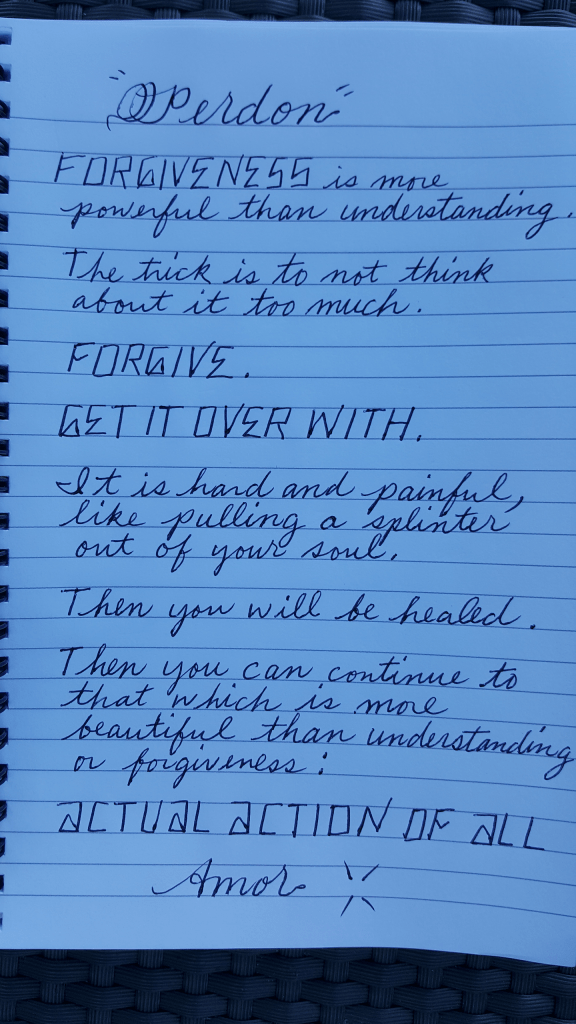 "Perdon"
FORGIVENESS is more
powerful than understanding.
The trick is to not think
about it too much.
FORGIVE.
GET IT OVER WITH.
It is hard and painful,
like pulling a splinter
out of your soul.
Then you will be healed.
Then you can continue to
that which is more
beautiful than understanding
or forgiveness:
ACTUAL ACTION OF ALL
Amor